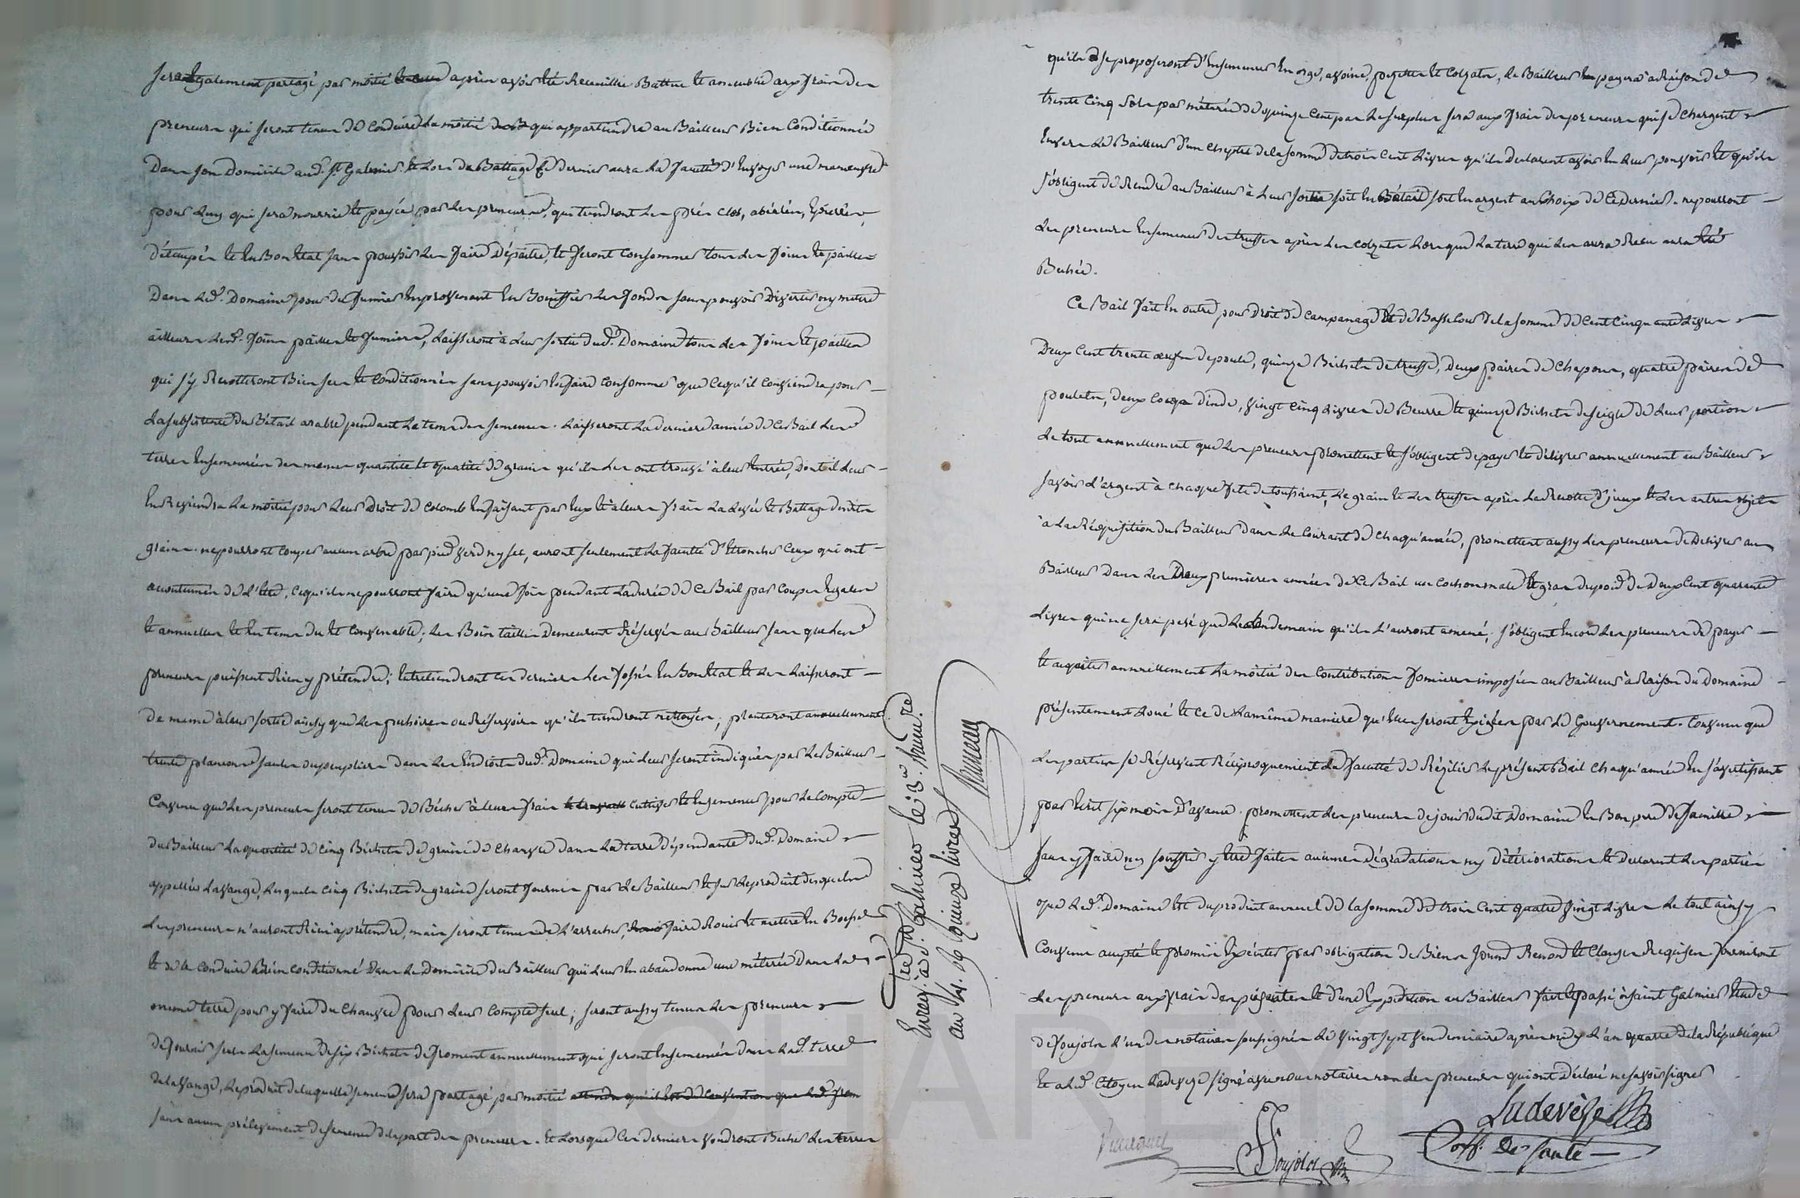 sera également partagé par moitié après avoir été Recueillie Battue et ameublie aux frais des
preneurs qui seront tenus de Conduire La moitié qui appartiendra au Bailleur Bien Conditionnée
Dans son Domicile aud. St Galmier et Lors du Battage Ce dernier aura La faculté d'Envoyer une manœuvre
pour Luy qui sera nourrie et payée par Les preneurs, qui tiendront Les prés clos, abérés, Epierrés,
étaupés et En Bon Etat sans pouvoir Les faire Dépaitre, et feront Consommer tous Les foins et pailles
Dans Led. Domaine pour des fumiers En provenant En Bouiffier Les fonds sans pouvoir Divertir ny mettre
ailleurs Lesd. foins pailles et fumiers, Laisseront à Leur sortie dud. Domaine tous Les foins Et pailles
qui s'y Recolteront Bien secs et Conditionnés sans pouvoir En faire Consommer que Ce qu'il Conviendra pour
La subsistance du Bétail arable pendant Le tems des semences. Laisseront La derniere année de Ce Bail Les
terres Ensemencées des memes quantité et qualité de grains qu'ils Les ont trouvé à leur Entrée, Dont il Leur
En Reviendra La moitié pour Leur Droit de Colomb En faisant par Eux et à leurs frais La Levée et Battage desdits
grains. ne pourront Couper aucun arbre par pied verd ny sec, auront seulement La faculté d'Etroncher Ceux qui ont
accoutumés de L'être, Ce qu'ils ne pourront faire qu'une fois pendant La durée de Ce Bail par Coupes Egales
et annuelles et En tems du et Convenable; Les Bois taillis Demeurent Réservés au Bailleur sans que Les
preneurs puissent Rien y prétendre; Entretiendront Ces derniers Les fossés En Bon Etat et Les Laisseront
De meme à leur sortie ainsy que Les pechoires ou Réservoirs qu'ils tiendront nettoyés; planteront annuellement
trente plançons saules ou peupliers Dans Les Endroits dud. Domaine qui Leur seront indiqués par Le Bailleur
Convenu que Les preneurs seront tenus de Bécher à Leurs frais cultiver et Ensemencer pour Le Compte
du Bailleur La quantité de Cinq Bichets de graine de Chanvre dans La terre dépendante dud. Domaine
appellée Lavange, Lesquels Cinq Bichets de graine seront fournis par Le Bailleur et sur Le produit desquels
Les preneurs n'auront Rien à prétendre, mais seront tenus de L'arracher, faire Rouir et mettre En
et de le Conduire Bien conditionné Dans Le Domicile du Bailleur qui Leur En abandonne une méterée Dans La
meme terre pour y faire du Chanvre pour Leur Compte seul; seront aussy tenus Les preneurs
de fournir seuls La semence de six Bichets de froment annuellement qui seront Ensemencés dans Lad. terre
de Lavange, Le produit de laquelle semence sera partagé par moitié
sans aucun prélevement de semence de la part des preneurs. Et Lorsque Ces derniers voudront Becher Les terres
qu'ils se proposeront d'Ensemencer En orge, avoine, pezettes et Colzats, Le Bailleur En payera à Raison de
trente Cinq sols par méterée de quinze Cent pas Le surplus sera aux frais des preneurs qui se Chargent
Envers Le Bailleur d'un cheptel de La somme de trois Cent Livres qu'ils Declarent avoir En Leur pouvoir Et qu'ils
s'obligent de Rendre au Bailleur à Leur sortie soit En Bétail soit En argent au Choix de Ce Dernier. ne pourront
Les preneurs Ensemencer des truffes après Les Colzats Lorsque La terre qui Les aura Recu aura Eté
Bechée.
Ce Bail fait En outre pour Droit de Campanage Et de Bassecour de La somme de Cent Cinquante Livres
Deux Cent trente œufs de poule, quinze Bichets de truffes, Deux paires de Chapons, quatre paires de
poulets, deux Coqs d'inde, vingt Cinq Livres de Beurre et quinze Bichets de seigle de Leur portion
Le tout annuellement que Les preneurs promettent et s'obligent de payer et délivrer annuellement au Bailleur
savoir L'argent à Chaque fête de toussaint, Le grain et Les truffes après La Recolte d'iceux et Les autres objets
à La Réquisition du Bailleur Dans Le Courant de Chaqu'année, promettent aussy Les preneurs de Delivrer au
Bailleur Dans Les Deux premieres années de Ce Bail un Cochon male Et gras du poid de Deux Cent quarante
Livres qui ne sera pesé que Le Lendemain qu'ils L'auront amené; s'obligent Encore Les preneurs de payer
et acquiter annuellement La moitié des Contributions foncieres imposées au Bailleur à Raison du Domaine
présentement Loué et Ce de La même maniere qu'Elles seront Exigées par Le Gouvernement. Convenu que
Les parties se Réservent Réciproquement La faculté de Résilier Le présent Bail Chaqu'année En s'avertissant
par Ecrit six mois d'avance. promettent Les preneurs de jouir dudit Domaine En Bons peres de famille
sans y faire ny souffrir y Etre faites aucunes Dégradations ny Détériorations et declarent Les parties
que Led. Domaine Est du produit annuel de La somme de trois Cent quatre vingt Livres Le tout ainsy
Convenu accepté et promis Exécuter par obligation de Biens soumis. Renonc. et Clauses Requises. fourniront
Les preneurs aux frais des présentes et d'une Expédition au Bailleur fait et passé à saint Galmier Etude
de Poujols L'un des notaires soussignés Le vingt sept vendemiaire après midy L'an quatre de la République
Et a Led. Citoyen Ladeveze signé avec nous notaires non Les preneurs qui ont déclaré ne savoir signer
Ladevèze
off. De Santé
Poujols
Enreg. à St. Galmier le 3 Brumre
an 4. R. quinze livres
Bruneau
ICHARETON